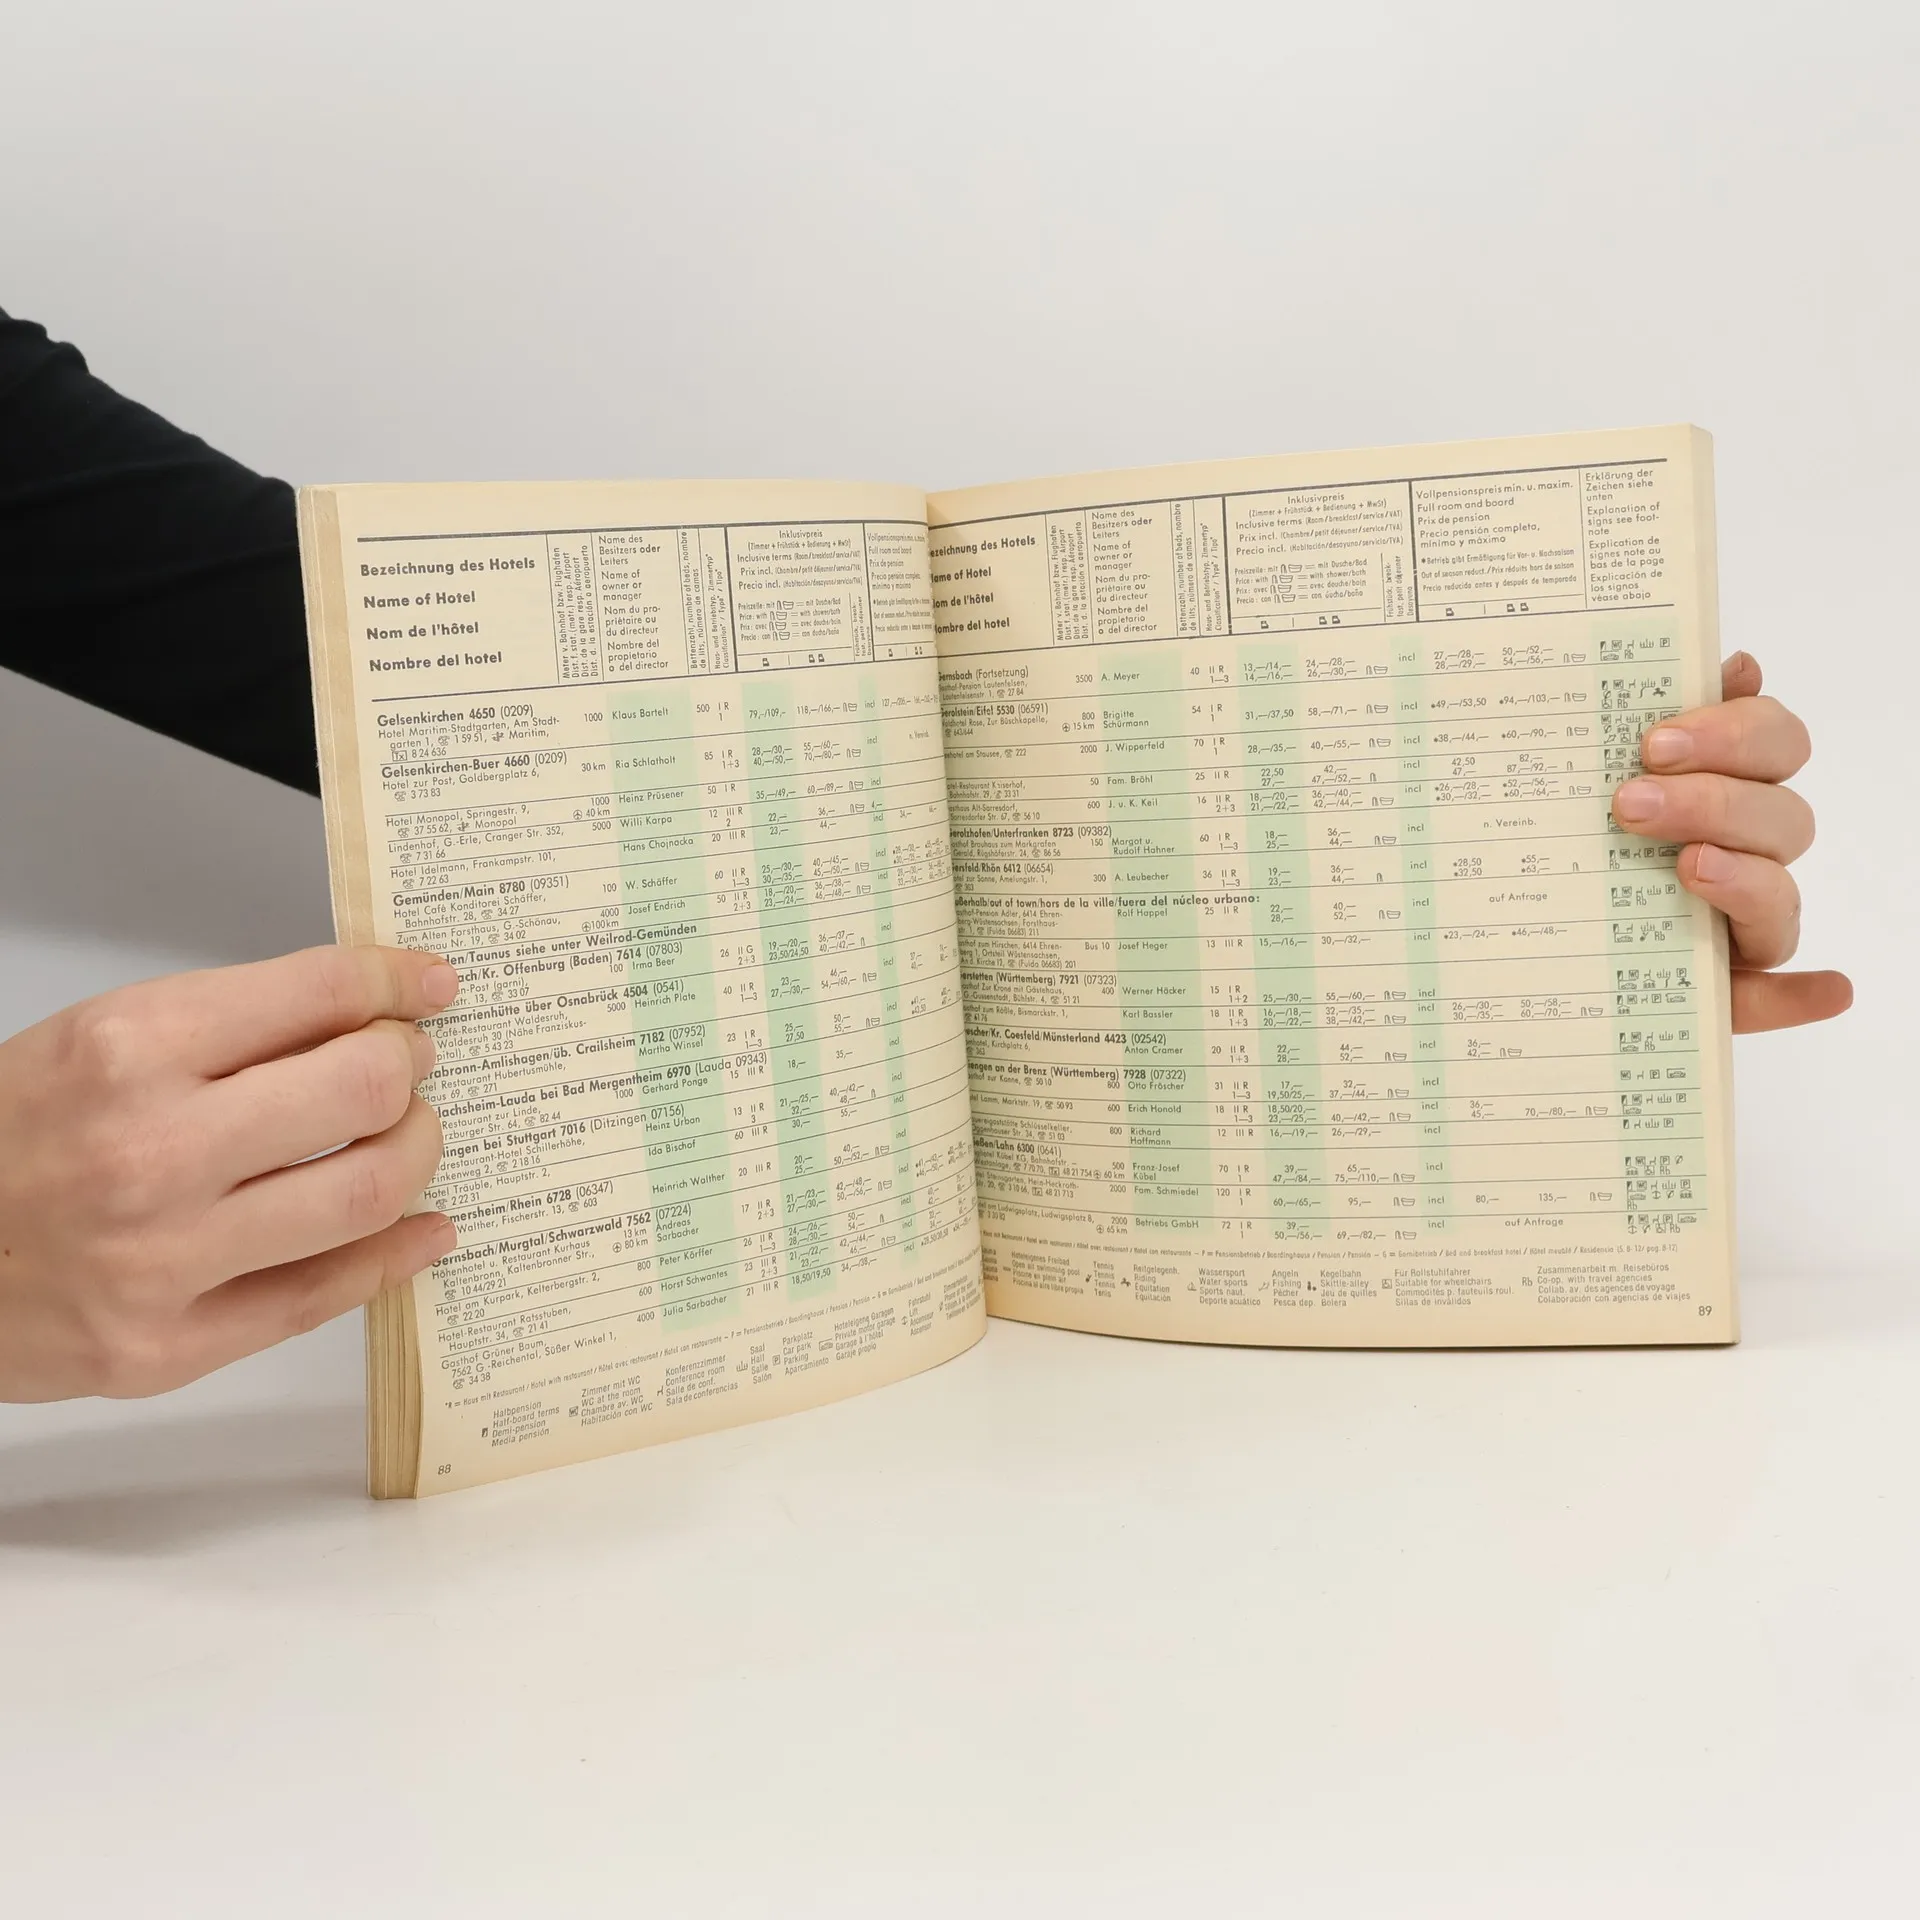 Bezeichnung des Hotels
Name of Hotel
Nom de l'hôtel
Nombre del hotel
Meter v. Bahnhof bzw. Flughafen
Dist. f. stat. (metr.) resp. Airport
Dist. de la gare resp. Aéroport
Dist. d. la estación o aeropuerto
Name des
Besitzers oder
Leiters
Name of
owner or
manager
Nom du pro-
priétaire ou
du directeur
Nombre del
propietario
o del director
Bettenzahl, number of beds, nombre
de lits, número de camas
Inklusivpreis
(Zimmer + Frühstück + Bedienung + MwSt)
Inclusive terms (Room/breakfast/service/VAT)
Prix incl. (Chambre/petit déjeuner/service/TVA)
Precio incl. (Habitación/desayuno/servicio/TVA)
Gelsenkirchen 4650 (0209)
Hotel Maritim-Stadtgarten, Am Stadt- 1000 Klaus Bartelt 500 I R 79,—/109,— 118,—/166,— incl
garten 1, 1 59 51, Maritim, 1
Tx 8 24 636
Gelsenkirchen-Buer 4660 (0209)
Hotel zur Post, Goldbergplatz 6, 30 km Ria Schlatholt 85 I R 28,—/30,— 55,—/60,— incl
3 73 83 1+3 40,—/50,— 70,—/80,—
Hotel Monopol, Springestr. 9, 1000 Heinz Prüsener 50 I R 35,—/49,— 60,—/89,— incl
37 55 62, Monopol 40 km
Lindenhof, G.-Erle, Cranger Str. 352, 5000 Willi Karpa 12 III R 22,— 36,— 4,—
7 31 66 2
Hotel Idelmann, Frankampstr. 101, Hans Chojnacka 20 III R 23,— 44,— incl
7 22 63
Gemünden/Main 8780 (09351)
Hotel Café Konditorei Schäffer, 100 W. Schäffer 60 II R 25,—/30,— 40,—/45,— incl
Bahnhofstr. 28, 34 27 1—3 30,—/35,— 45,—/50,—
Zum Alten Forsthaus, G.-Schönau, 4000 Josef Endrich 50 II R 18,—/20,— 36,—/38,— incl
Schönau Nr. 19, 34 02 100 km 2+3 23,—/24,— 46,—/48,—
den/Taunus siehe unter Weilrod-Gemünden
bach/Kr. Offenburg (Baden) 7614 (07803)
-Post (garni), 100 Irma Beer 26 II G 19,—/20,— 36,—/37,—
str. 13, 33 07 2+3 23,50/24,50 40,—/42,—
eorgsmarienhütte über Osnabrück 4504 (0541)
-Café-Restaurant Waldesruh, 5000 Heinrich Plate 40 II R 23,— 46,— incl
Waldesruh 30 (Nähe Franziskus- 1—3 27,—/30,— 54,—/60,—
pital), 5 43 23
rabronn-Amlishagen/üb. Crailsheim 7182 (07952)
Restaurant Hubertusmühle, Martha Winsel 23 II R 25,— 50,—
Haus 69, 271 1—3 27,50 55,—
lachsheim-Lauda bei Bad Mergentheim 6970 (Lauda 09343)
Restaurant zur Linde, 1000 Gerhard Ponge 15 III R 18,— 35,—
rzburger Str. 64, 82 44
lingen bei Stuttgart 7016 (Ditzingen 07156)
drestaurant-Hotel Schillerhöhe, Heinz Urban 13 II R 21,—/25,— 40,—/42,—
Finkenweg 2, 2 18 16 3 32,— 48,—
Hotel Träuble, Hauptstr. 2, Ida Bischof 60 III R 30,— 55,—
2 22 31
mersheim/Rhein 6728 (06347)
Walther, Fischerstr. 13, 603 Heinrich Walther 20 III R 20,— 40,— incl
25,— 50,—/52,—
Gernsbach/Murgtal/Schwarzwald 7562 (07224)
Höhenhotel u. Restaurant Kurhaus 13 km Andreas 17 II R 21,—/23,— 42,—/48,— incl
Kaltenbronn, Kaltenbronner Str., 80 km Sarbacher 2+3 27,—/30,— 50,—/56,—
10 44/29 21
Hotel am Kurpark, Kelterbergstr. 2, 800 Peter Körffer 26 II R 24,—/26,—
22 20 1—3 28,—/30,— 54,—
Hotel-Restaurant Ratsstuben, 600 Horst Schwantes 23 III R 21,—/22,— 42,—/44,—
Hauptstr. 34, 21 41 2+3 23,— 46,—
Gasthof Grüner Baum, 4000 Julia Sarbacher 21 III R 18,50/19,50 34,—/38,—
7562 G.-Reichental, Süßer Winkel 1,
34 38
Halbpension
Half-board terms
Demi-pension
Media pensión
Zimmer mit WC
WC at the room
Chambre av. WC
Habitación con WC
Konferenzzimmer
Conference room
Salle de conf.
Sala de conferencias
Saal
Hall
Salle
Salón
Parkplatz
Car park
Parking
Aparcamiento
Hoteleigene Garagen
Private motor garage
Garage à l'hôtel
Garaje propio
Fahrstuhl
Lift
Ascenseur
Ascensor
88
ezeichnung des Hotels
ame of Hotel
om de l'hôtel
ombre del hotel
Name des
Besitzers oder
Leiters
Name of
owner or
manager
Nom du pro-
priétaire ou
du directeur
Nombre del
propietario
o del director
Inklusivpreis
(Zimmer + Frühstück + Bedienung + MwSt)
Inclusive terms (Room/breakfast/service/VAT)
Prix incl. (Chambre/petit déjeuner/service/TVA)
Precio incl. (Habitación/desayuno/servicio/TVA)
Preiszeile: mit = mit Dusche/Bad
Price: with = with shower/bath
Prix: avec = avec douche/bain
Precio: con = con ducha/baño
Vollpensionspreis min. u. maxim.
Full room and board
Prix de pension
Precia pensión completa,
mínimo y máximo
Betrieb gibt Ermäßigung für Vor- u. Nachsaison
Out of season reduct./Prix réduits hors de saison
Precio reducido antes y después de temporada
Erklärung der
Zeichen siehe
unten
Explanation of
signs see foot-
note
Explication de
signes note au
bas de la page
Explicación de
los signos
véase abajo
ernsbach (Fortsetzung)
asthof-Pension Lautenfelsen, 3500 A. Meyer 40 II R 13,—/14,— 24,—/28,— incl 27,—/28,— 50,—/52,—
Lautenfelsenstr. 1, 27 84 1—3 14,—/16,— 26,—/30,— 28,—/29,— 54,—/56,— Rb
erolstein/Eifel 5530 (06591)
aldhotel Rose, Zur Büschkapelle, 800 Brigitte 54 I R 31,—/37,50 58,—/71,— incl 49,—/53,50 94,—/103,—
643/644 15 km Schürmann 1 Rb
otel am Stausee, 222 2000 J. Wipperfeld 70 I R 28,—/35,— 40,—/55,— incl 38,—/44,— 60,—/90,—
1
otel-Restaurant Kaiserhof, 50 Fam. Bröhl 25 II R 22,50 42,— incl 42,50 82,—
Bahnhofstr. 29, 33 31 27,— 47,—/52,— 47,— 87,—/92,—
asthaus Alt-Sarresdorf, 600 J. u. K. Keil 16 II R 18,—/20,— 36,—/40,— incl 26,—/28,— 52,—/56,—
Sarresdorfer Str. 67, 56 10 2+3 21,—/22,— 42,—/44,— 30,—/32,— 60,—/64,—
erolzhofen/Unterfranken 8723 (09382)
asthof Brauhaus zum Markgrafen 150 Margot u. 60 I R 18,— 36,— incl n. Vereinb.
Gerald, Rügshöferstr. 24, 86 56 Rudolf Hahner 1—3 25,— 44,—
ersfeld/Rhön 6412 (06654)
otel zur Sonne, Amelungstr. 1, 300 A. Leubecher 36 II R 19,— 36,— incl 28,50 55,—
303 1—3 23,— 44,— 32,50 63,— Rb
ußerhalb/out of town/hors de la ville/fuera del núcleo urbano:
asthof-Pension Adler, 6414 Ehren- Rolf Happel 25 II R 22,— 40,— incl auf Anfrage
berg-Wüstensachsen, Forsthaus- 28,— 52,— Rb
str. 1, (Fulda 06683) 211
asthof zum Hirschen, 6414 Ehren- Bus 10 Josef Heger 13 III R 15,—/16,— 30,—/32,— incl 23,—/24,— 46,—/48,—
berg 1, Ortsteil Wüstensachsen, Rb
An d. Kirche 12, (Fulda 06683) 201
erstetten (Württemberg) 7921 (07323)
asthof Zur Krone mit Gästehaus, 400 Werner Häcker 15 I R 25,—/30,— 55,—/60,— incl
G.-Gussenstadt, Bühlstr. 4, 51 21 1+2
asthof zum Rößle, Bismarckstr. 1, Karl Bassler 18 II R 16,—/18,— 32,—/35,— incl 26,—/30,— 50,—/58,—
61 76 1+3 20,—/22,— 38,—/42,— 30,—/35,— 60,—/70,—
escher/Kr. Coesfeld/Münsterland 4423 (02542)
omhotel, Kirchplatz 6, Anton Cramer 20 II R 22,— 44,— incl 36,—
363 1+3 28,— 52,— 42,— Rb
engen an der Brenz (Württemberg) 7928 (07322)
asthof zur Kanne, 50 10 800 Otto Fröscher 31 II R 17,— 32,— incl
1—3 19,50/25,— 37,—/44,—
otel Lamm, Marktstr. 19, 50 93 600 Erich Honold 18 II R 18,50/20,— incl 36,—
1—3 23,—/25,— 40,—/42,— 45,— 70,—/80,—
uereigaststätte Schlüsselkeller, 800 Richard 12 III R 16,—/19,— 26,—/29,— incl
Oggenhauser Str. 34, 51 03 Hoffmann
eßen/Lahn 6300 (0641)
ghotel Kübel KG, Bahnhofstr. – 500 Franz-Josef 70 I R 39,— 65,— incl
Westanlage, 7 70 70, Tx 48 21 754 60 km Kübel 1 47,—/84,— 75,—/110,— Rb
tel Steinsgarten, Hein-Heckroth- 2000 Fam. Schmiedel 120 I R 60,—/65,— 95,— incl 80,— 135,—
Str. 20, 3 10 66, Tx 48 21 713 1
otel am Ludwigsplatz, Ludwigsplatz 8, 2000 Betriebs GmbH 72 I R 39,— incl auf Anfrage
3 30 82 65 km 1 50,—/56,— 69,—/82,— Rb
Hoteleigenes Freibad
Open air swimming pool
Piscine en plein air
Piscina al aire libre propia
Tennis
Tennis
Tennis
Tenis
Reitgelegenh.
Riding
Equitation
Equitación
Wassersport
Water sports
Sports naut.
Deporte acuático
Angeln
Fishing
Pêcher
Pesca dep.
Kegelbahn
Skittle-alley
Jeu de quilles
Bolera
Für Rollstuhlfahrer
Suitable for wheelchairs
Commodités p. fauteuils roul.
Sillas de inválidos
Rb Zusammenarbeit m. Reisebüros
Co-op. with travel agencies
Collab. av. des agences de voyage
Colaboración con agencias de viajes
89